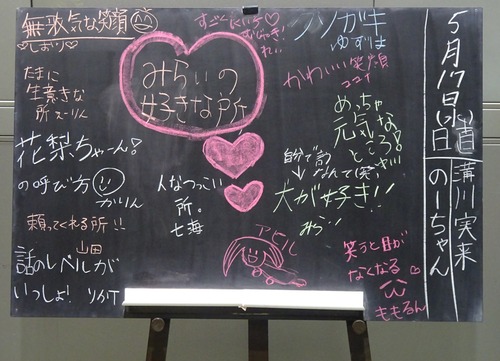 5月17日(水)
日直
溝川実来
のーちゃん
みらいの
好きな所
無邪気な笑顔
♡しおり♡
たまに
生意きな
所 まーりん
花梨ちゃーん!
の呼び方
かりん
頼ってくれる所!!
山田
話のレベルが
いっしょ! りかT
すごくにいう
クソガキ
ゆずは
かわいい笑顔
ココナ
めっちゃ
元気な
ところ!
自分で言う
なんて(笑)
犬が好き!!
みらい
人なつっこい
所。
七海
アピル
笑うと目が
なくなる
ももるん